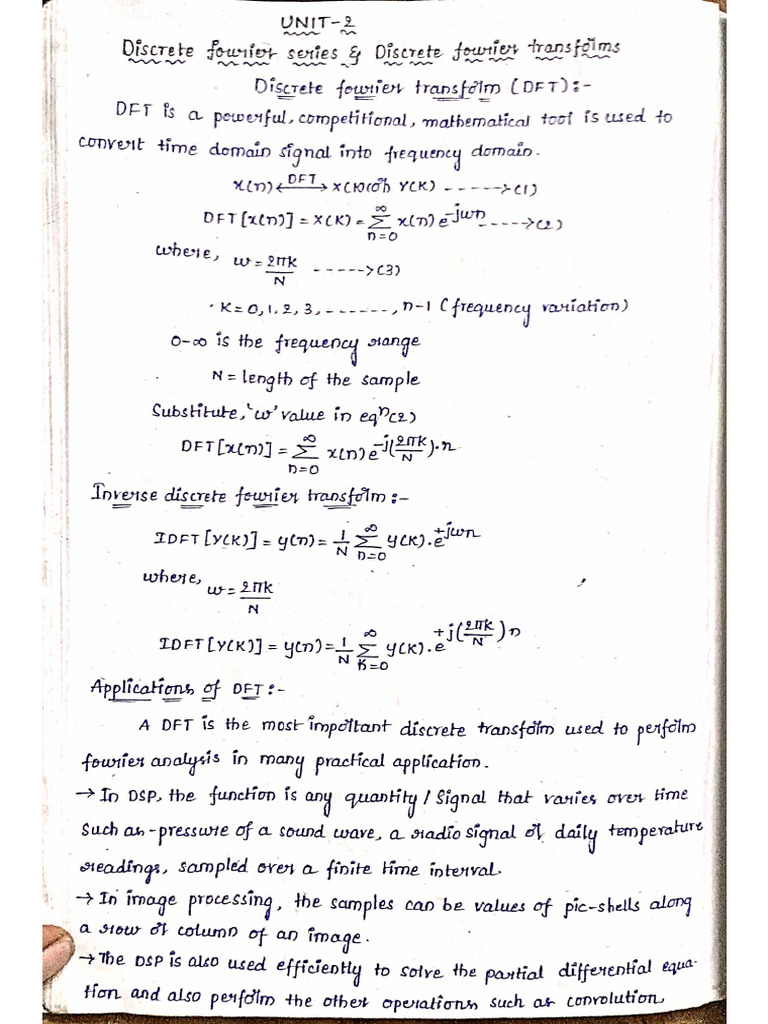 UNIT-2
Discrete fourier series & Discrete fourier transforms
Discrete fourier transform (DFT):-
DFT is a powerful, competitional, mathematical tool is used to
convert time domain signal into frequency domain.
x(n) <--DFT--> X(K) (or) Y(K) ------>(1)
DFT[x(n)] = X(K) = ∞Σn=0 x(n) e^-jwn ------>(2)
where, w = 2πK/N ------>(3)
K = 0, 1, 2, 3, -------, n-1 (frequency variation)
0-∞ is the frequency range
N = length of the sample
Substitute, 'w' value in eqn(2)
DFT[x(n)] = ∞Σn=0 x(n) e^-j(2πK/N).n
Inverse discrete fourier transform :-
IDFT[Y(K)] = y(n) = 1/N ∞Σn=0 Y(K). e^+jwn
where, w = 2πK/N
IDFT[Y(K)] = y(n) = 1/N ∞ΣK=0 Y(K). e^+j(2πK/N)n
Applications of DFT :-
A DFT is the most important discrete transform used to perform
fourier analysis in many practical application.
→ In DSP, the function is any quantity / Signal that varies over time
Such as -pressure of a sound wave, a radio signal or daily temperature
readings, sampled over a finite time interval.
→ In image processing, the samples can be values of pic-shells along
a row or column of an image.
→ The DSP is also used efficiently to solve the partial differential equa-
tion and also perform the other operations such as convolution,